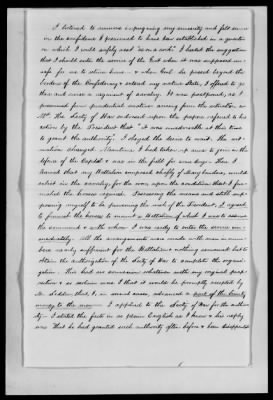 I listened to rumors impugning my sincerity and felt secure
in the confidence I presumed to have been established in a quarter
on which I could safely rest "as on a rock." I heeded the suggestion
that I should enter the service of the Govt when it was supposed un-
safe for me to return home - & when Govt. be passed beyond the
borders of the Confederacy & extend my native State, I offered to go
then and raise a regiment of cavalry. It was postponed, as I
presumed from prudential motives arising from the situation, as
Mr. The Secty of War endorsed upon the papers referred to his
action by the President that "it was inadvisable at this time
to grant the authority." I obeyed the desire to wait. The sit-
uation changed. Meantime I had taken up arms to join in the
defence of the Capital & was in the field for some days. There I
learned that any Battalion composed chiefly of Marylanders, would
enlist in the cavalry for the war, upon the condition that I fur-
nished the horses required. Possessing the means and still sup-
posing myself to be possessing the mind of the President, I agreed
to furnish the horses to mount a battalion of which I was to assume
the command & with whom I was ready to enter the service im-
mediately. All the arrangements were made with men
nearly sufficient for the Battalion & nothing remained but to
obtain the authorization of the Secty of War to complete the organi-
zation. This had no connexion whatever with my original propo-
sition & so certain was I that it would be promptly accepted by
Mr. Seddon that, I, in several cases, advanced a part of the bounty
money to the men. I applied to the Secty of War for the author-
ity. I stated the facts in as plain English as I know & his reply
was that he had granted such authority often before & been disappointed